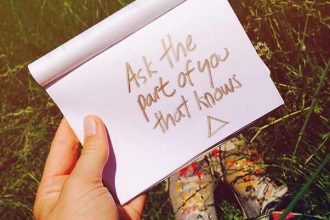 Ask the
part of you
that knows